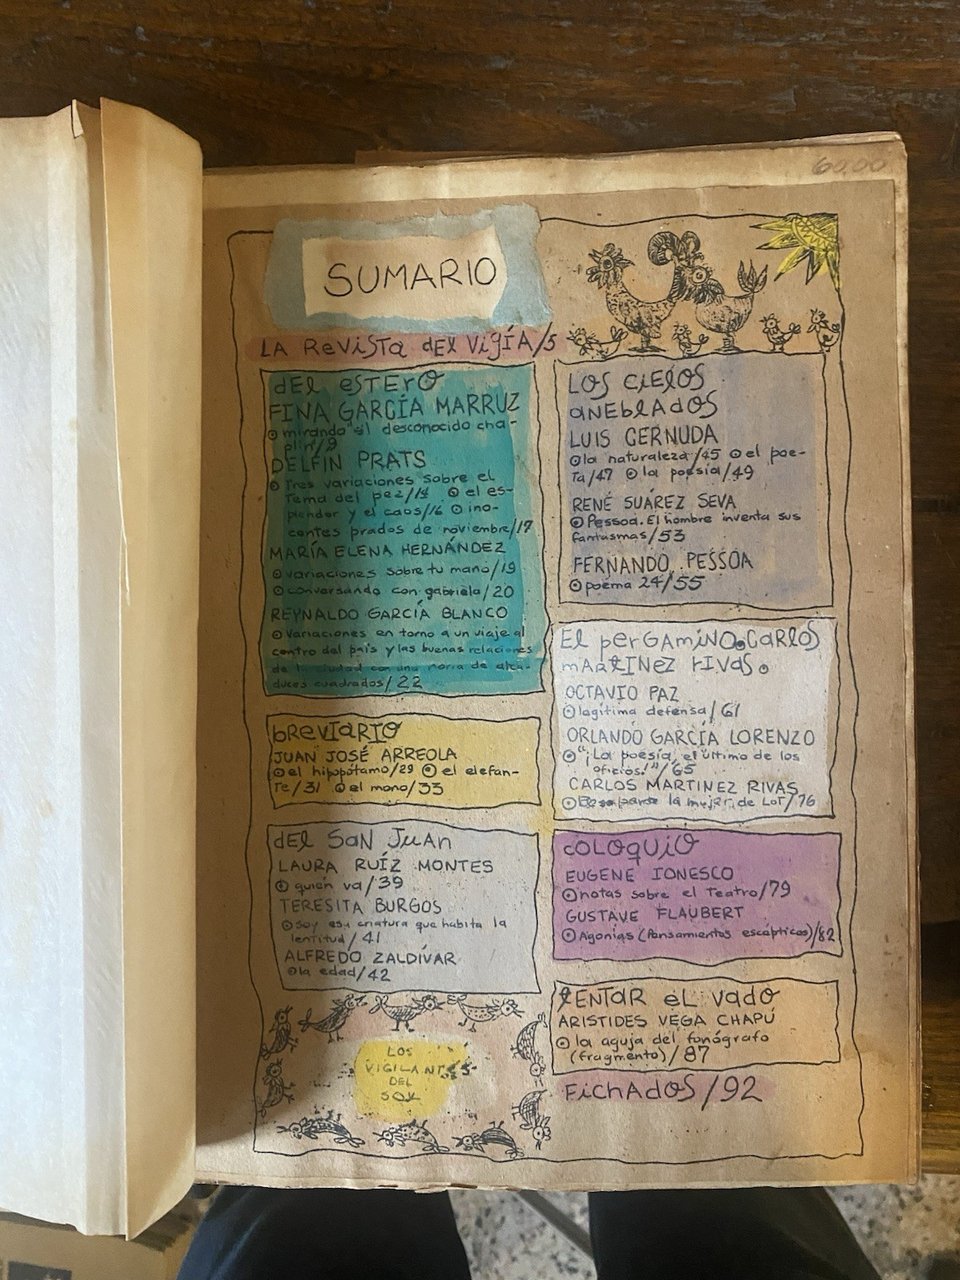 60.00
SUMARIO
LA REVISTA DEL VIGÍA/5
DEL ESTERO
FINA GARCÍA MARRUZ
mirando al desconocido cha-
plin/9
DELFÍN PRATS
Tres variaciones sobre el
Tema del pez/14 el es-
plendor y el caos/16 ino-
centes prados de noviembre/17
MARÍA ELENA HERNÁNDEZ
variaciones sobre tu mano/19
conversando con gabriela/20
REYNALDO GARCÍA BLANCO
Variaciones en torno a un viaje al
centro del país y las buenas relaciones
de la ciudad con una noria de alca-
duces cuadrados/22
BREVIARIO
JUAN JOSÉ ARREOLA
el hipopótamo/29 el elefan-
te/31 el mono/33
DEL SAN JUAN
LAURA RUÍZ MONTES
quién va/39
TERESITA BURGOS
Soy esa criatura que habita la
lentitud/41
ALFREDO ZALDÍVAR
la edad/42
LOS
VIGILANTES
DEL
SOL
LOS CIELOS
ANEBLADOS
LUIS CERNUDA
la naturaleza/45 el poe-
Ta/47 la poesía/49
RENÉ SUÁREZ SEVA
Pessoa. El hombre inventa sus
fantasmas/53
FERNANDO PESSOA
poema 24/55
EL PERGAMINO. CARLOS
MARTINEZ RIVAS.
OCTAVIO PAZ
legítima defensa/61
ORLANDO GARCÍA LORENZO
"¡La poesía, el último de los
oficios!"/65
CARLOS MARTINEZ RIVAS
Beso para la mujer de Lot/76
COLOQUIO
EUGENE IONESCO
notas sobre el Teatro/79
GUSTAVE FLAUBERT
Agonías (Pensamientos escépticos)/82
TENTAR EL VADO
ARISTIDES VEGA CHAPÚ
la aguja del fonógrafo
(fragmento)/87
FICHADOS/92